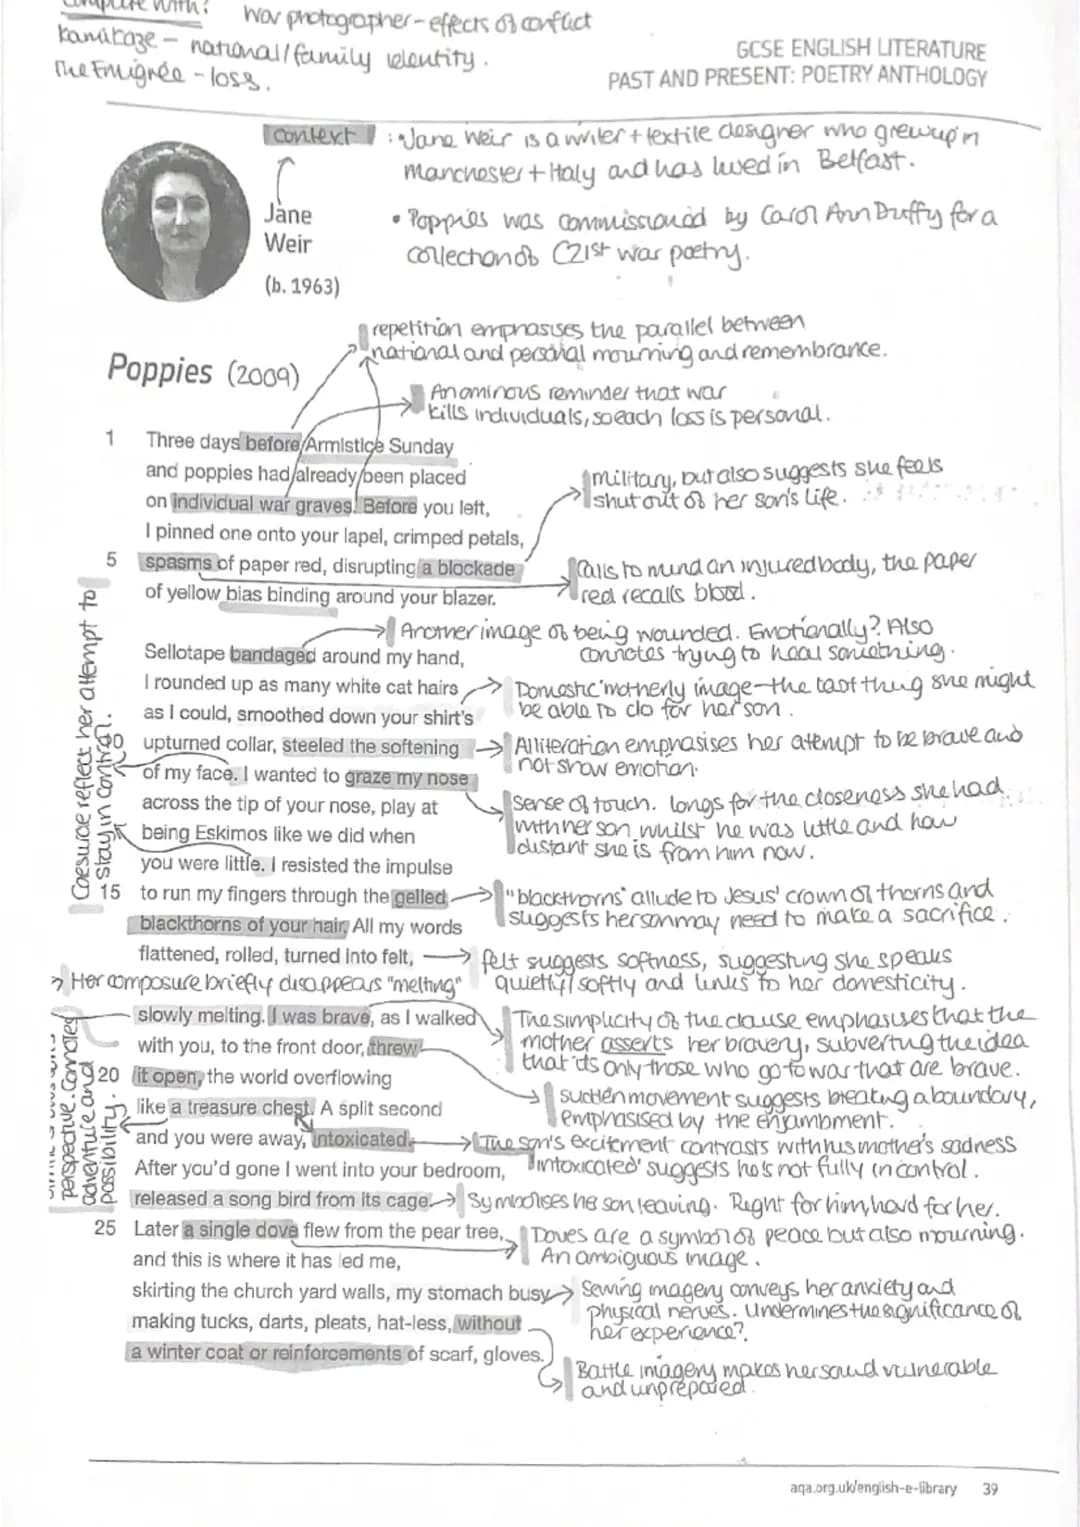 Compare with: War photographer - effects of conflict
Kamikaze - national/family identity.
The Emigrée - loss.
GCSE ENGLISH LITERATURE
PAST AND PRESENT: POETRY ANTHOLOGY
context : • Jane Weir is a writer + textile designer who grew up in
Manchester + Italy and has lived in Belfast.
• Poppies was commissioned by Carol Ann Duffy for a
collection of C21st war poetry.
Jane
Weir
(b. 1963)
repetition emphasises the parallel between
national and personal mourning and remembrance.
Poppies (2009)
An ominous reminder that war
kills individuals, so each loss is personal.
1 Three days before Armistice Sunday
and poppies had already been placed
on individual war graves. Before you left,
I pinned one onto your lapel, crimped petals,
5 spasms of paper red, disrupting a blockade
of yellow bias binding around your blazer.
military, but also suggests she feels
shut out of her son's life.
Calls to mind an injured body, the paper
red recalls blood.
Another image of being wounded. Emotionally? Also
connotes trying to heal something.
Sellotape bandaged around my hand,
I rounded up as many white cat hairs
as I could, smoothed down your shirt's
10 upturned collar, steeled the softening
of my face. I wanted to graze my nose
across the tip of your nose, play at
being Eskimos like we did when
you were little. I resisted the impulse
15 to run my fingers through the gelled
blackthorns of your hair. All my words
flattened, rolled, turned into felt,
Domestic 'motherly image - the last thing she might
be able to do for her son.
Alliteration emphasises her attempt to be brave and
not show emotion.
Sense of touch. longs for the closeness she had
with her son whilst he was little and how
distant she is from him now.
"blackthorns' allude to Jesus' crown of thorns and
suggests her son may need to make a sacrifice.
felt suggests softness, suggesting she speaks
quietly/softly and links to her domesticity.
Caesurae reflect her attempt to
stay in control.
Her composure briefly disappears "melting"
slowly melting. I was brave, as I walked
with you, to the front door, threw
20 it open, the world overflowing
like a treasure chest. A split second
and you were away, intoxicated.
After you'd gone I went into your bedroom,
released a song bird from its cage.
25 Later a single dove flew from the pear tree,
and this is where it has led me,
skirting the church yard walls, my stomach busy
making tucks, darts, pleats, hat-less, without
a winter coat or reinforcements of scarf, gloves.
The simplicity of the clause emphasises that the
mother asserts her bravery, subverting the idea
that it's only those who go to war that are brave.
sudden movement suggests breaking a boundary,
emphasised by the enjambment.
The son's excitement contrasts with his mother's sadness
'intoxicated' suggests he's not fully in control.
Symbolises her son leaving. Right for him, hard for her.
Doves are a symbol of peace but also mourning.
An ambiguous image.
Sewing imagery conveys her anxiety and
physical nerves. Undermines the significance of
her experience?
Battle imagery makes her sound vulnerable
and unprepared.
perspective. Connotes
adventure and
possibility.
aqa.org.uk/english-e-library 39